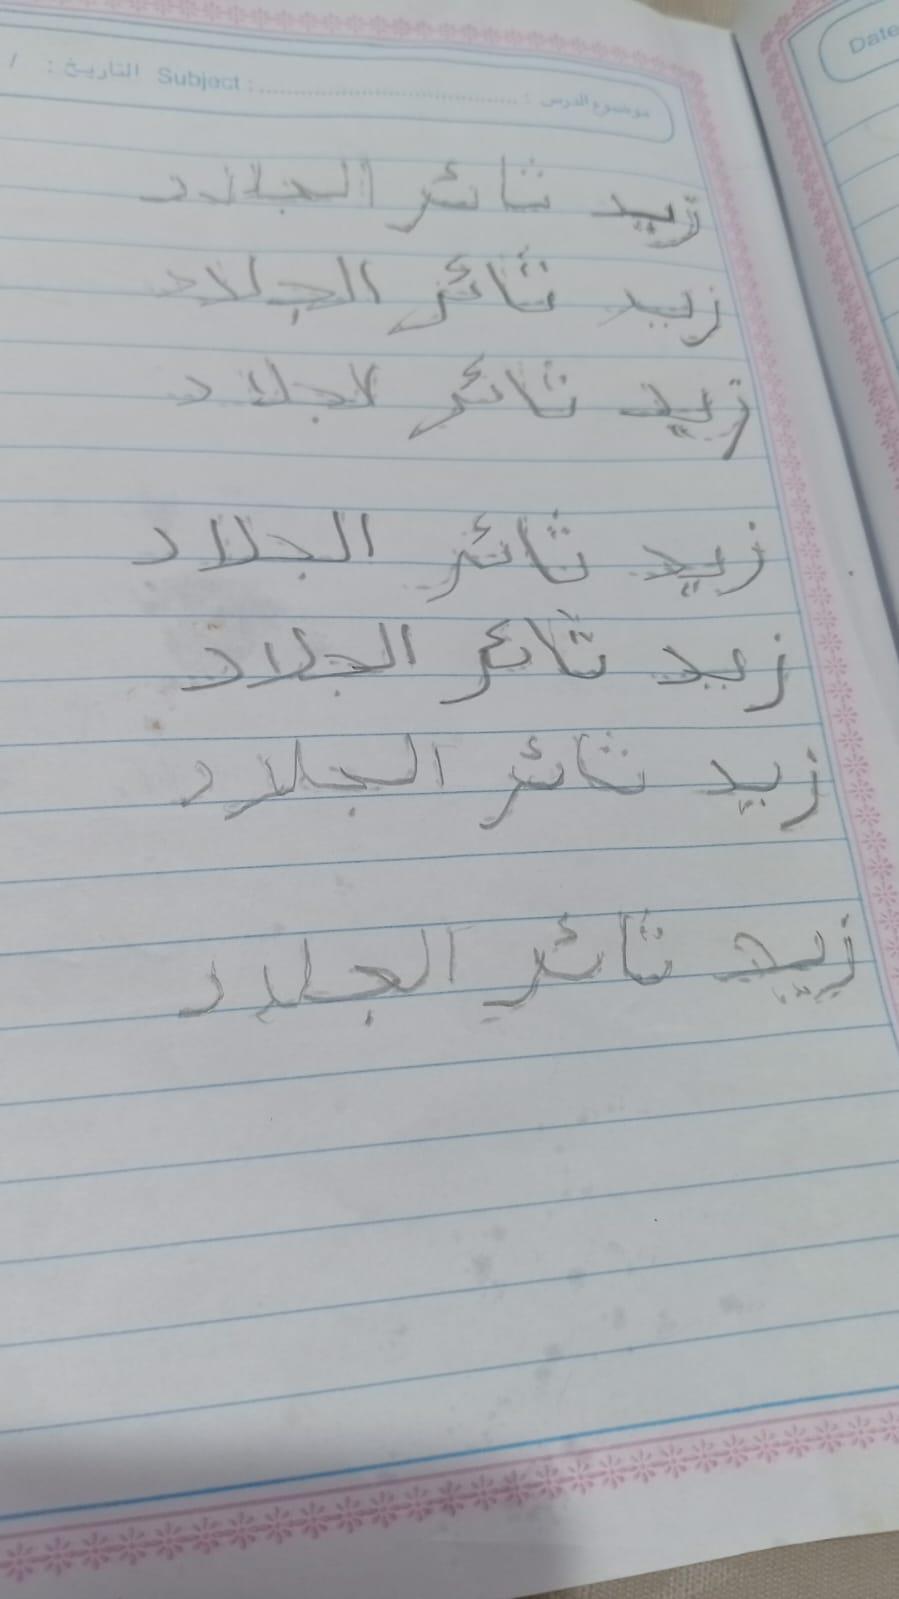 موضوع الدرس : Subject : التاريخ : /
Date
زيد ثائر الجلاد
زيد ثائر الجلاد
زيد ثائر لاجلاد
زيد ثائر الجلاد
زيد ثائر الجلاد
زيد ثائر الجلاد
زيد ثائر الجلاد